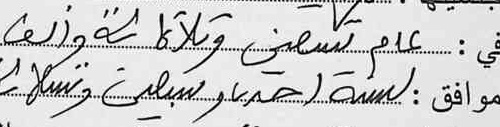 في : عام تسعين وثلاثمائة وألف
موافق : لسنة احدى وسبعين وتسعمائة